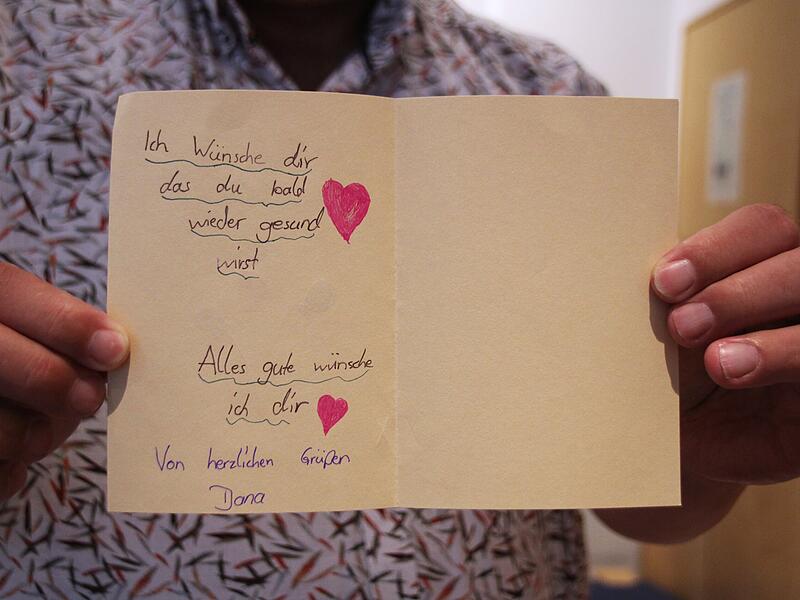 Ich Wünsche dir
das du bald
wieder gesund
wirst
Alles gute wünsche
ich dir
Von herzlichen Grüßen
Dana